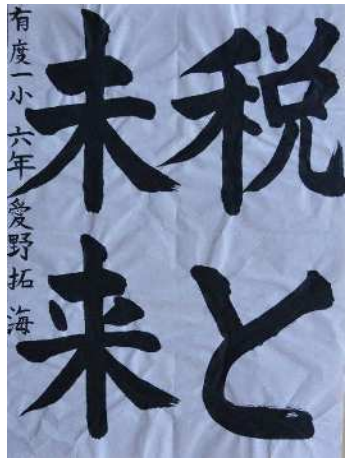 税と
未来
有度一小 六年 愛野拓海